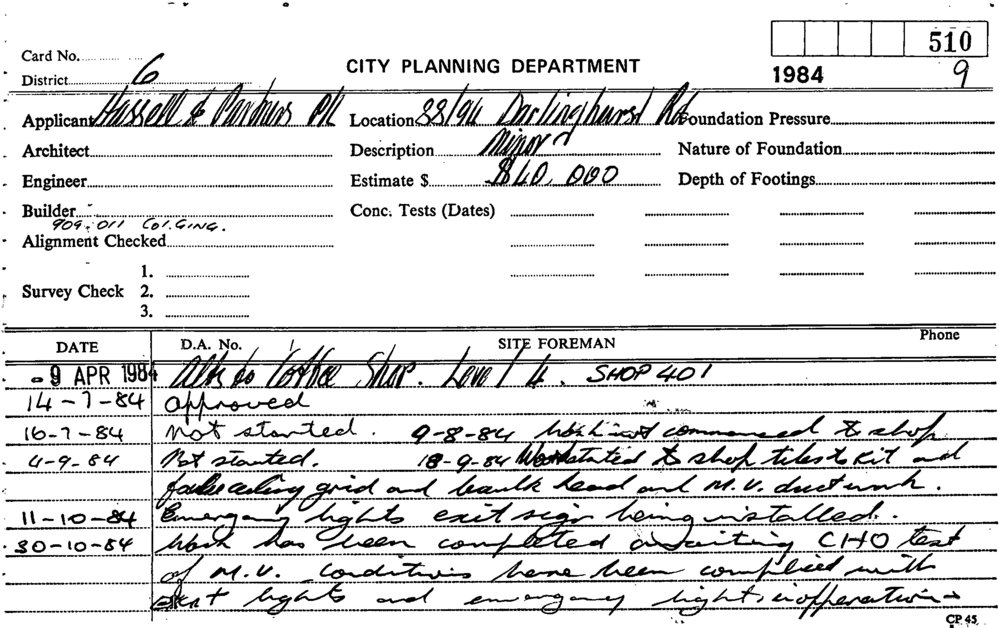 510
Card No.
CITY PLANNING DEPARTMENT
1984 9
District 6
Applicant Hassell & Partners P/L Location 88/94 Darlinghurst Rd Foundation Pressure
Architect Description Minor Nature of Foundation
Engineer Estimate $ $40,000 Depth of Footings
Builder Conc. Tests (Dates)
909-011 COL.GING.
Alignment Checked
1.
Survey Check 2.
3.
DATE D.A. No. SITE FOREMAN Phone
-9 APR 1984 Alts to Coffee Shop. Level 4. SHOP 401
14-7-84 approved
16-7-84 Not started. 9-8-84 Work not commenced to shop
4-9-84 Not started. 18-9-84 Work started to shop tiles to Kit and
false ceiling grid and baulk head and M.V. ductwork.
11-10-84 Emergency lights exit sign being installed.
30-10-84 Work has been completed awaiting CHO test
of M.V. Conditions have been complied with
Exit lights and emergency lights in operation
CP 45